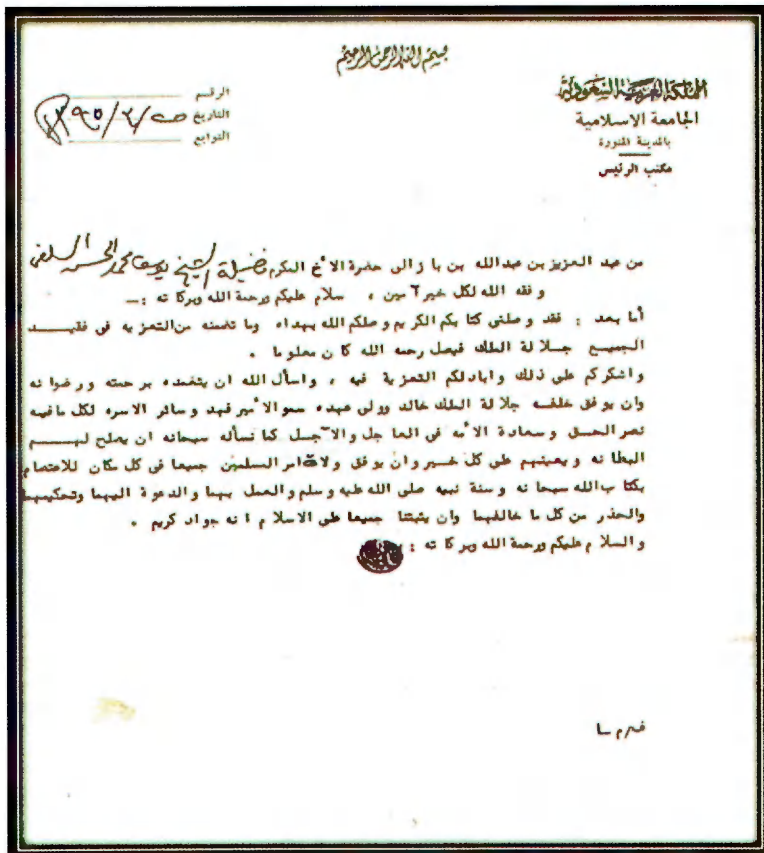 بسم الله الرحمن الرحيم
المملكة العربية السعودية
الجامعة الاسلامية
بالمدينة المنورة
مكتب الرئيس
الرقم
التاريخ ١٣٩٥/٣/٢٥
التوابع
من عبد العزيز بن عبدالله بن باز الى حضرة الأخ المكرم فضيلة الشيخ يوسف محمد السلفي
وفقه الله لكل خير آمين ، سلام عليكم ورحمة الله وبركاته :ــ
أما بعد : فقد وصلني كتابكم الكريم وصلكم الله بهداه وما تضمنه من التعزيه في فقيــد
الجميع جـلالة الملك فيصل رحمه الله كان معلوما .
واشكركم على ذلك وابادلكم التعزية فيه ، واسأل الله ان يتغمده برحمته ورضوانه
وان يوفق خلفه جلالة الملك خالد وولي عهده سمو الأمير فهد وسائر الاسره لكل مافيه
نصر الحـق وسعادة الأمه في العاجل والآجـل كما نسأله سبحانه ان يصلح لهــم
البطانه ويعينهم على كل خـير وان يوفق ولاة امر المسلمين جميعا في كل مكان للاعتصام
بكتاب الله سبحانه وسنة نبيه صلى الله عليه وسلم والعمل بهما والدعوة اليهما وتحكيمهما
والحذر من كل ما خالفهما وان يثبتنا جميعا على الاسلام انه جواد كريم .
والسلام عليكم ورحمة الله وبركاته :